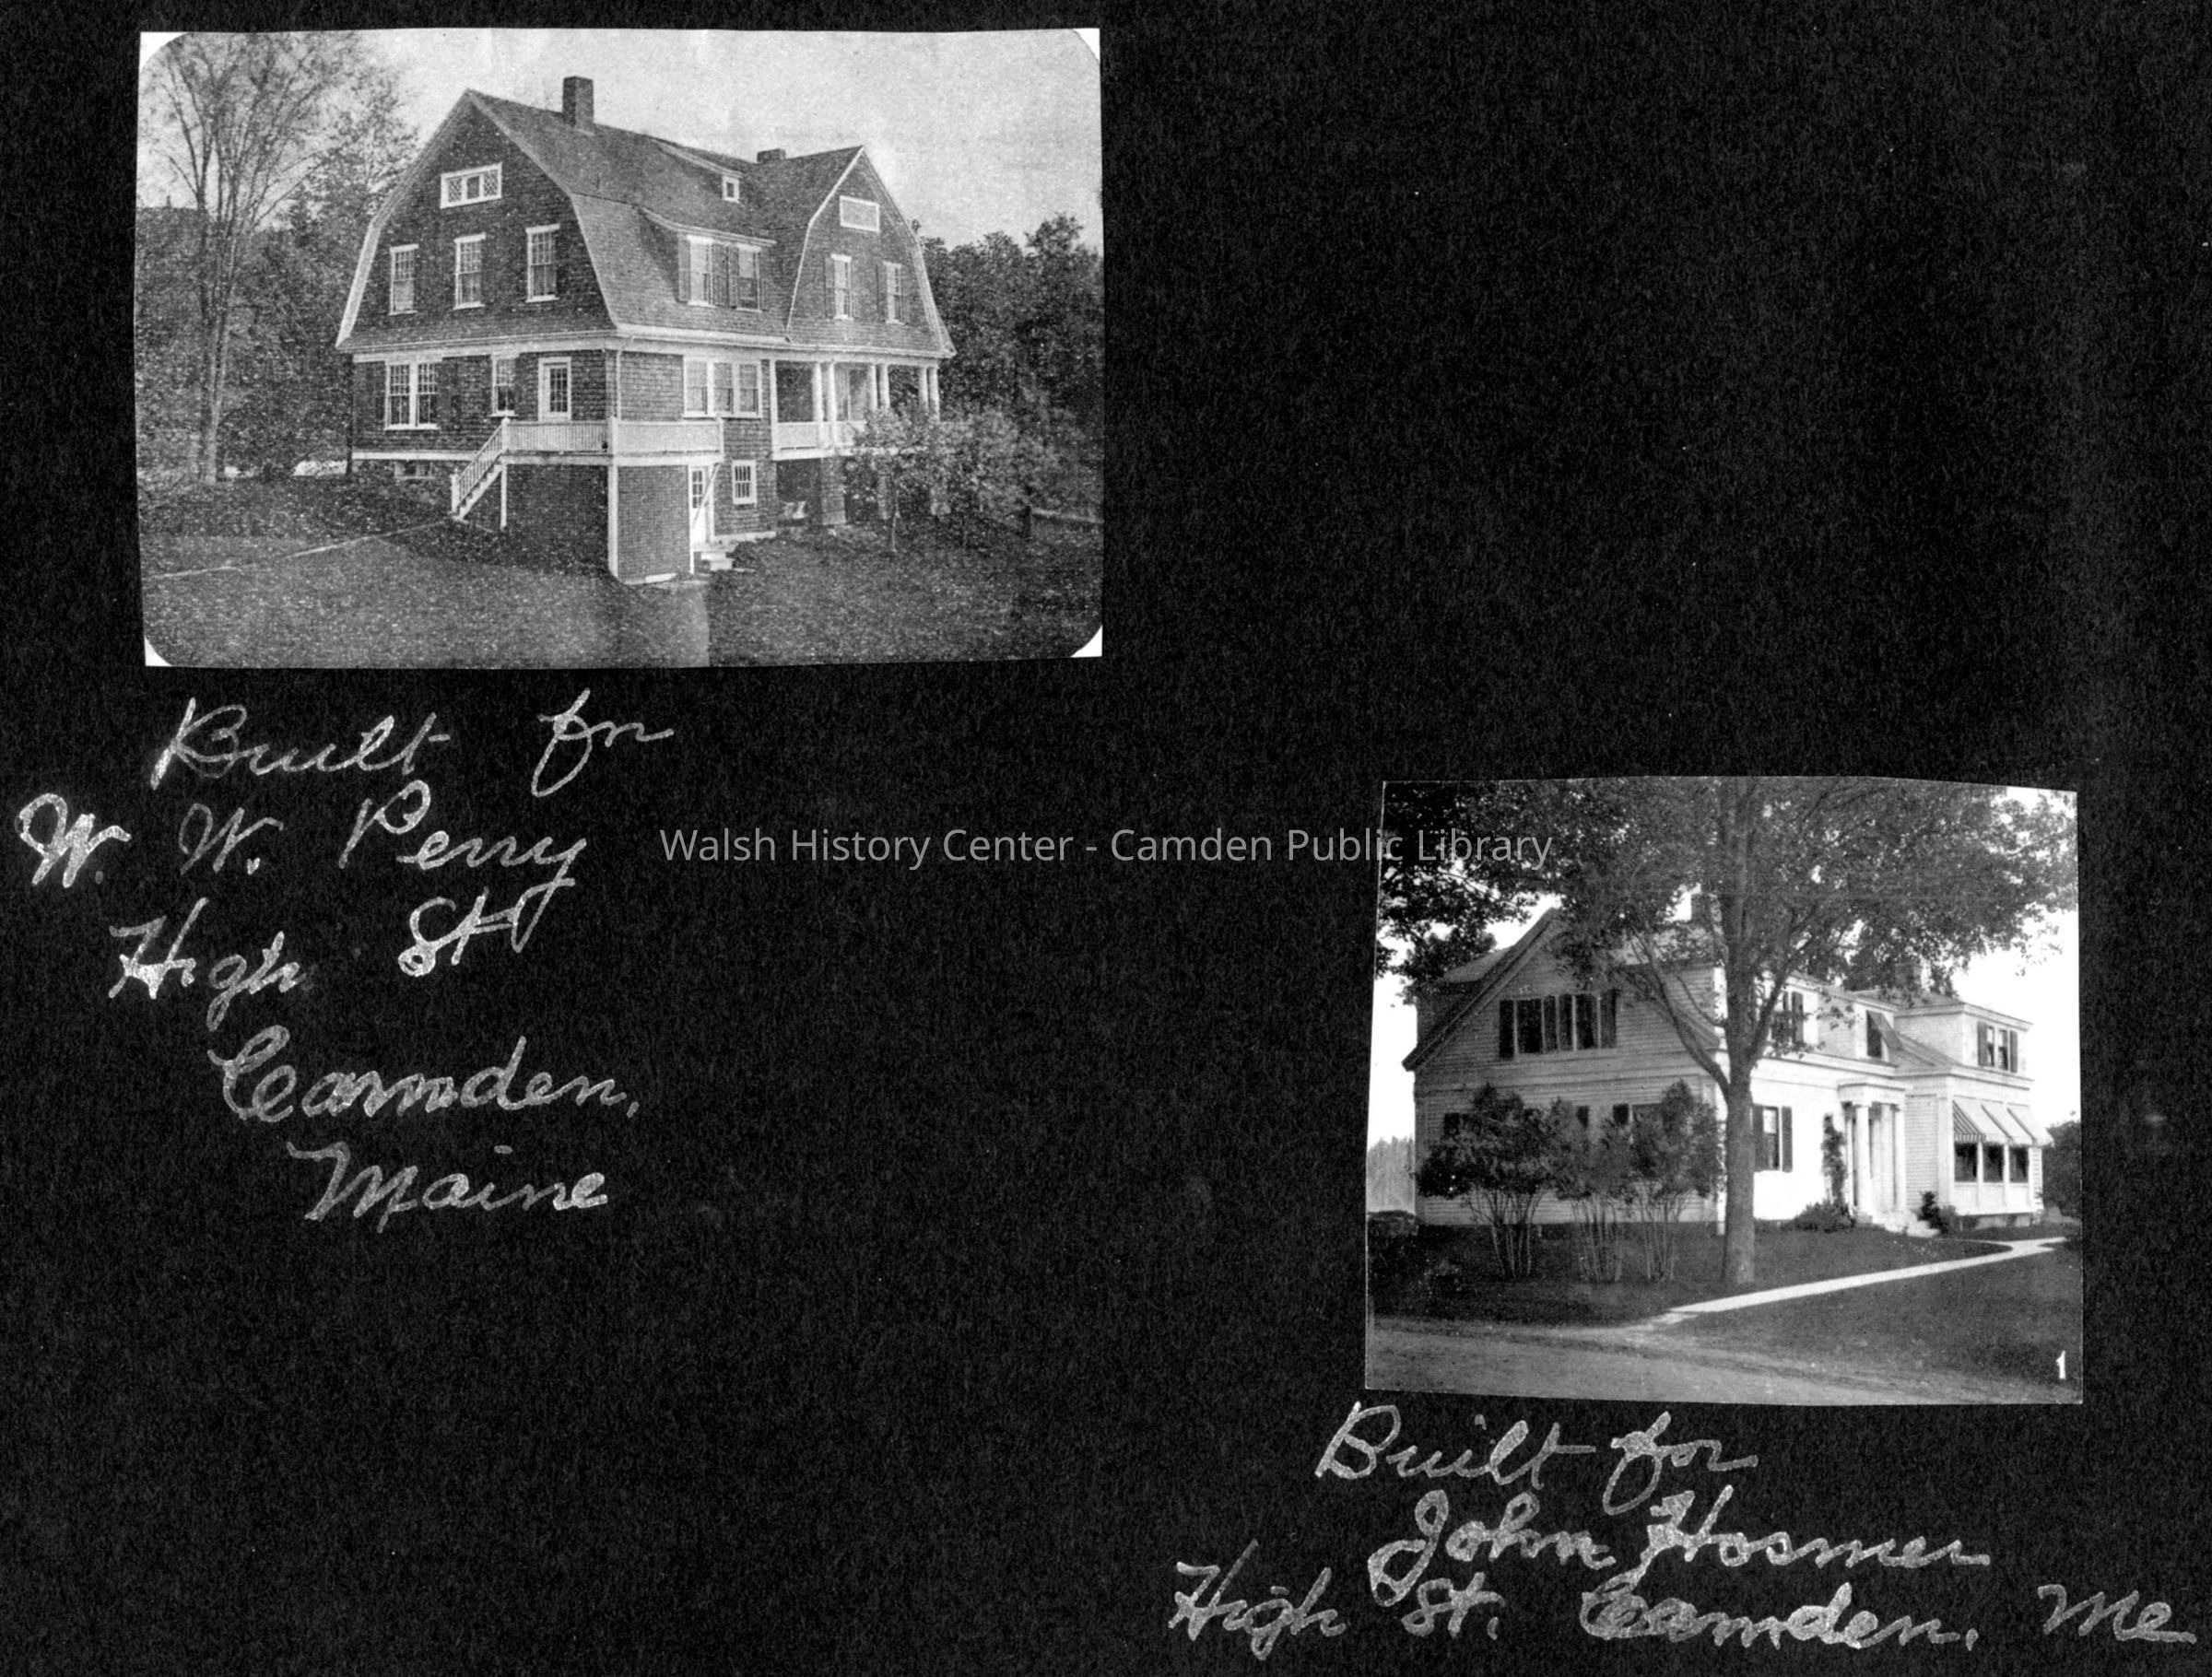 Built for
W. W. Perry
High St
Camden,
Maine
Walsh History Center - Camden Public Library
1
Built for
John Hosmer
High St. Camden, Me